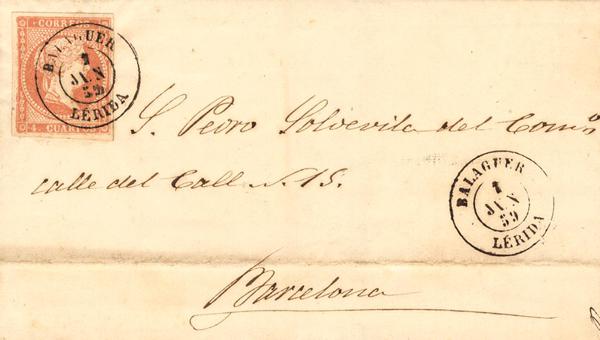 CORREOS
4 CUARTOS
BALAGUER
1
JUN
59
LÉRIDA
S. Pedro Soldevila del Comº
calle del Call N. 15.
BALAGUER
1
JUN
59
LÉRIDA
Barcelona